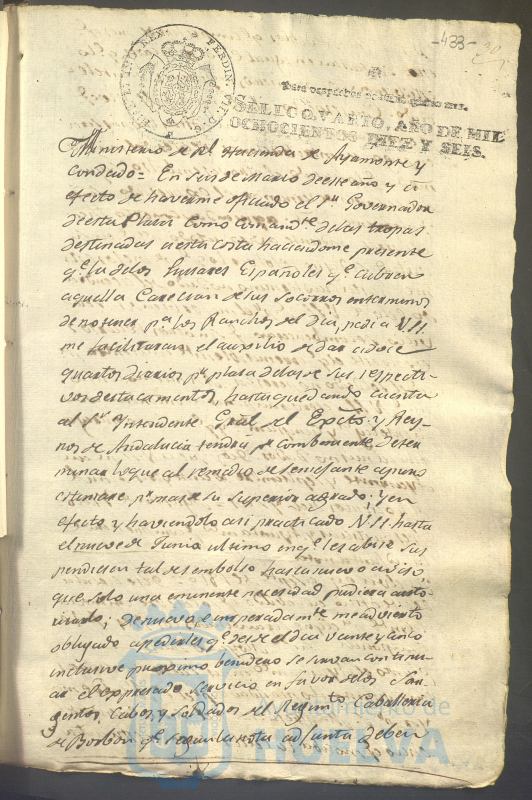 -433-
FERDIN. VII. D. G.
HISP. ET IND. REX.
Para despachos de oficio quatro mrs.
SELLO QVARTO, AÑO DE MIL
OCHOCIENTOS DIEZ Y SEIS.
Ministerio de Rl. Hacienda de Ayamonte y
Condado = En seis de Marzo de este año y a
efecto de haverme oficiado el Sor. Governador
de esta Plaza como comandte. de las tropas
destinadas a esta costa haciendome presente
qe. la de los Husares Españoles qe. cubren
aquella Carecian de sus Socorros en terminos
de no tener pa. los Ranchos del dia, pedi a V.SS.
me facilitaran el auxilio de dar a doce
quartos diarios pr. plaza de las de sus respecti-
vos destacamentos, hasta que dando cuenta
al Sr. Yntendente Gral. del Exto. y Rey-
nos de Andalucia tendra pr. combeniente deter
minar lo que al remedio de semejante apuro
estimare pr. mas de su superior agrado; y en
efecto y haviendolo asi practicado V.SS. hasta
el nueve de Junio ultimo en qe. les abise sus
pendiesen tal desembolso hasta nuevo aviso,
que solo una eminente necesidad pudiera moti-
varlo; de nuevo e inesperadamte. me advierto
obligado a pedirles qe. desde el dia veinte y cinco
inclusive proximo benidero se sirvan continu-
ar el expresado servicio en favor de los Sar-
gentos, Cabos, y Soldados del Regimto. Caballeria
de Borbon qe. segun la nota adjunta deben
Ayuntamiento de
HUELVA